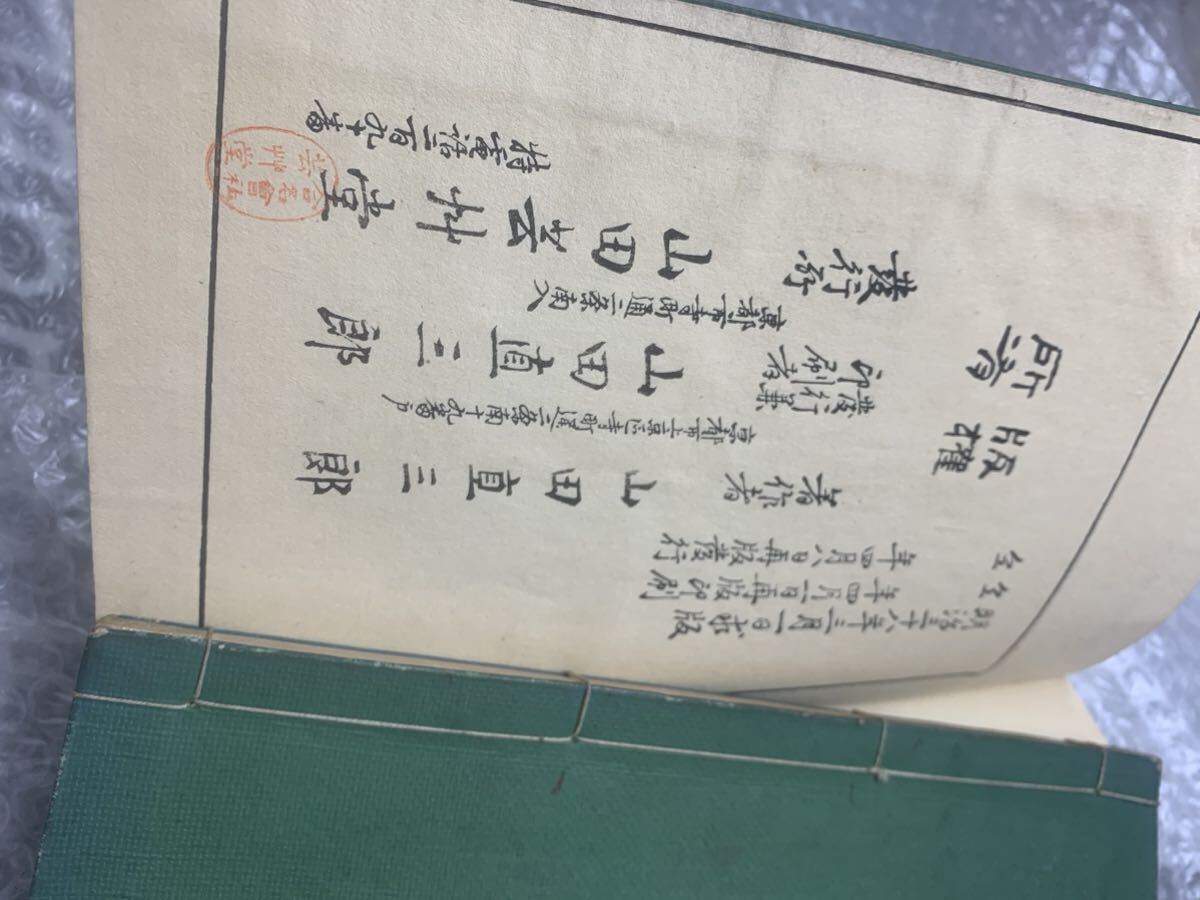 版權所有
明治三十八年三月一日初版
仝年四月一日再版印刷
仝年四月八日再版發行
著作者 山田直三郎
京都市上京區寺町通二条南十九番戸
發行兼印刷者 山田直三郎
京都市寺町通二条南入
發行所 山田芸艸堂
特電話二百九十番
合名會社
芸艸堂